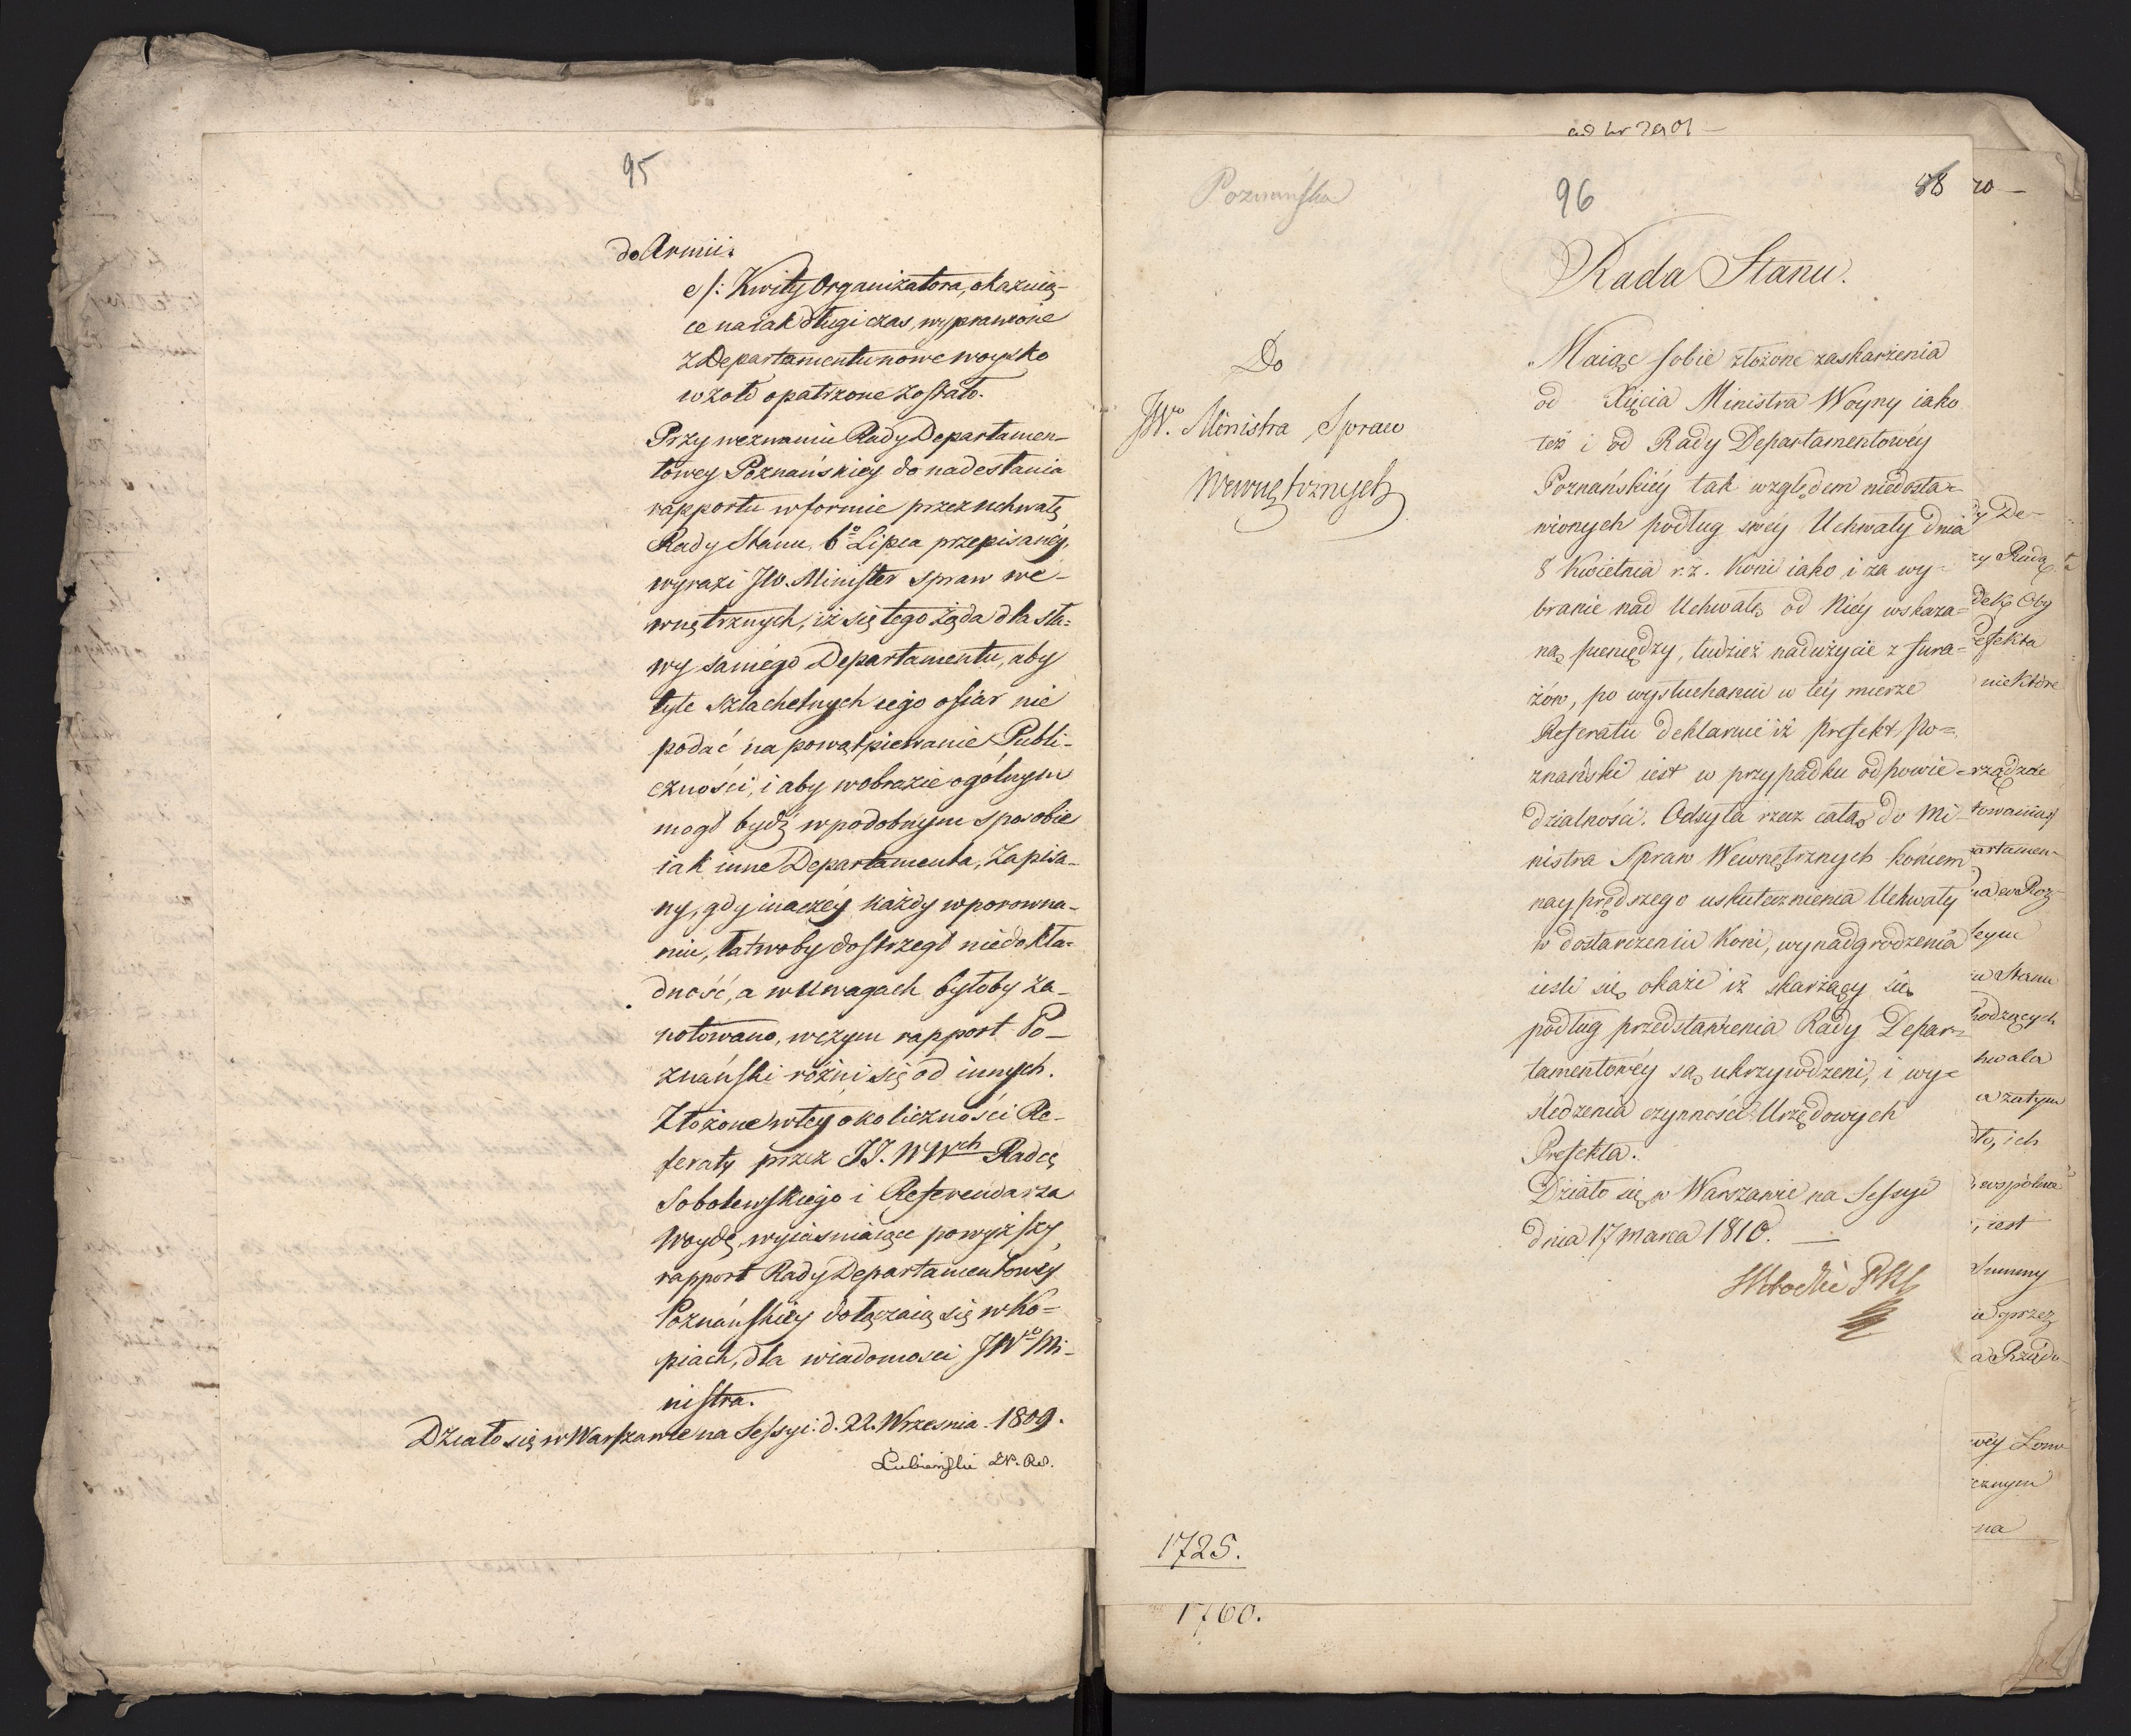 95
do Armii.
e/: Kwity Organizatora, okazuią-
ce na iak długi czas, wyprawione
z Departamentu nowe woysko
w żołd opatrzone zostało.
Przy wezwaniu Rady Departamen-
towey Poznańskiey do nadesłania
rapportu w formie przez uchwałę
Rady Stanu, 6º Lipca przepisanéy,
wyrazi JW. Minister Spraw we-
wnętrznych, iż się tego żąda dla sła-
wy samégo Departamentu, aby
tyle szlachetnych iego ofiar nie
podać na powątpiewanie Publi-
czności, i aby w obrazie ogólnym
mogł bydź w podobnym sposobie
iak inne Departamenta, zapisa-
ny, gdy inaczéy każdy w porowna-
niu, łatwoby dostrzegł niedokła-
dność, a w uwagach byłoby za-
notowano, w czym rapport Po-
znański różni się od innych.
Złożone w tey okoliczności Re-
feraty przez JJ. WWch Radcę
Sobolewskiego i Referendarza
Woydę, wyiaśniaiące powyższy
rapport Rady Departamentowéy
Poznańskiéy dołączaią się w Ko-
piach, dla wiadomości JWº Mi-
nistra.
Działo się w Warszawie na Sessyi d. 22. Września 1809.
Lubieński
Poznańska
96
88
Rada Stanu.
Do
JWo. Ministra Spraw
Wewnętrznych
Maiąc sobie złożone zaskarżenia
od Xięcia Ministra Woyny iako
też i od Rady Departamentowéy
Poznańskiéy tak względem niedosta-
wionych podług swéy Uchwały dnia
8 Kwietnia r. z. Koni iako i za wy-
branie nad Uchwałę od Niéy wskaza-
ną pieniędzy, tudzież nadużycie z fura-
żów, po wysłuchaniu w téy mierze
Referatu deklaruie iż Prefekt Po-
znański iest w przypadku odpowie-
dzialności. Odsyła rzecz całą do Mi-
nistra Spraw Wewnętrznych końcem
nayprędszego uskutecznienia Uchwały
w dostarczeniu Koni, wynadgrodzenia
iesli się okaże iż skarżący się
podług przedstawienia Rady Depar-
tamentowéy są ukrzywdzeni, i wy-
śledzenia czynności Urzędowych
Prefekta.
Działo się w Warszawie na Sessyi
dnia 17 marca 1810.
1725.
1760.